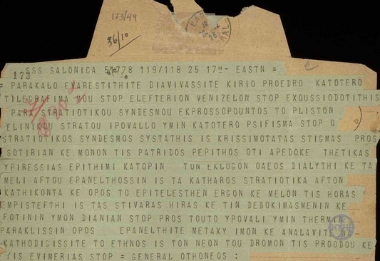 123/49
36/10
SSS SALONICA 55778 119/118 25 17H- EASTN =
173
PARAKALO EXARESTITHITE DIAVIVASSITE KIRIO PROEDRO KATOTERO
TILEGRAFIMA MOU STOP ELEFTERION VENIZELON STOP EXOUSSIODOTITHIS
PARA STRATIOTIKOU SYNDESMOU EKPROSSOPOUNTOS TO PLISTON
ELINIKOU STRATOU IPOVALLO YMIN KATOTERO PSIFISMA STOP O
STRATIOTIKOS SYNDESMOS SYSTATHIS IS KRISSIMOTATAS STIGMAS PROS
SOTIRIAN KE MONON TIS PATRIDOS PEPITHOS OTI APEDOKE THETIKAS
YPIRESSIAS EPITHIMI KATOPIN TON EKLOGON OPOS DIALYTHI KE TA
MELI AFTOU EPANELTHOSSIN IS TA KATHAROS STRATIOTIKA AFTON
KATHIKONTA KE OPOS TO EPITELESTHEN ERGON KE MELON TIS HORAS
EMPISTEFTHI IS TAS STIVARAS HIRAS KE TIN DEDOKIMASMENIN KE
FOTININ YMON DIANIAN STOP PROS TOUTO YPOVALI YMIN THERMIN
PARAKLISSIN OPOS EPANELTHITE METAXY IMON KE ANALAVITE
KATHODIGISSITE TO ETHNOS IS TON NEON TOU DROMON TIS PROODOU KE
TIS EVIMERIAS STOP = GENERAL OTHONEOS =